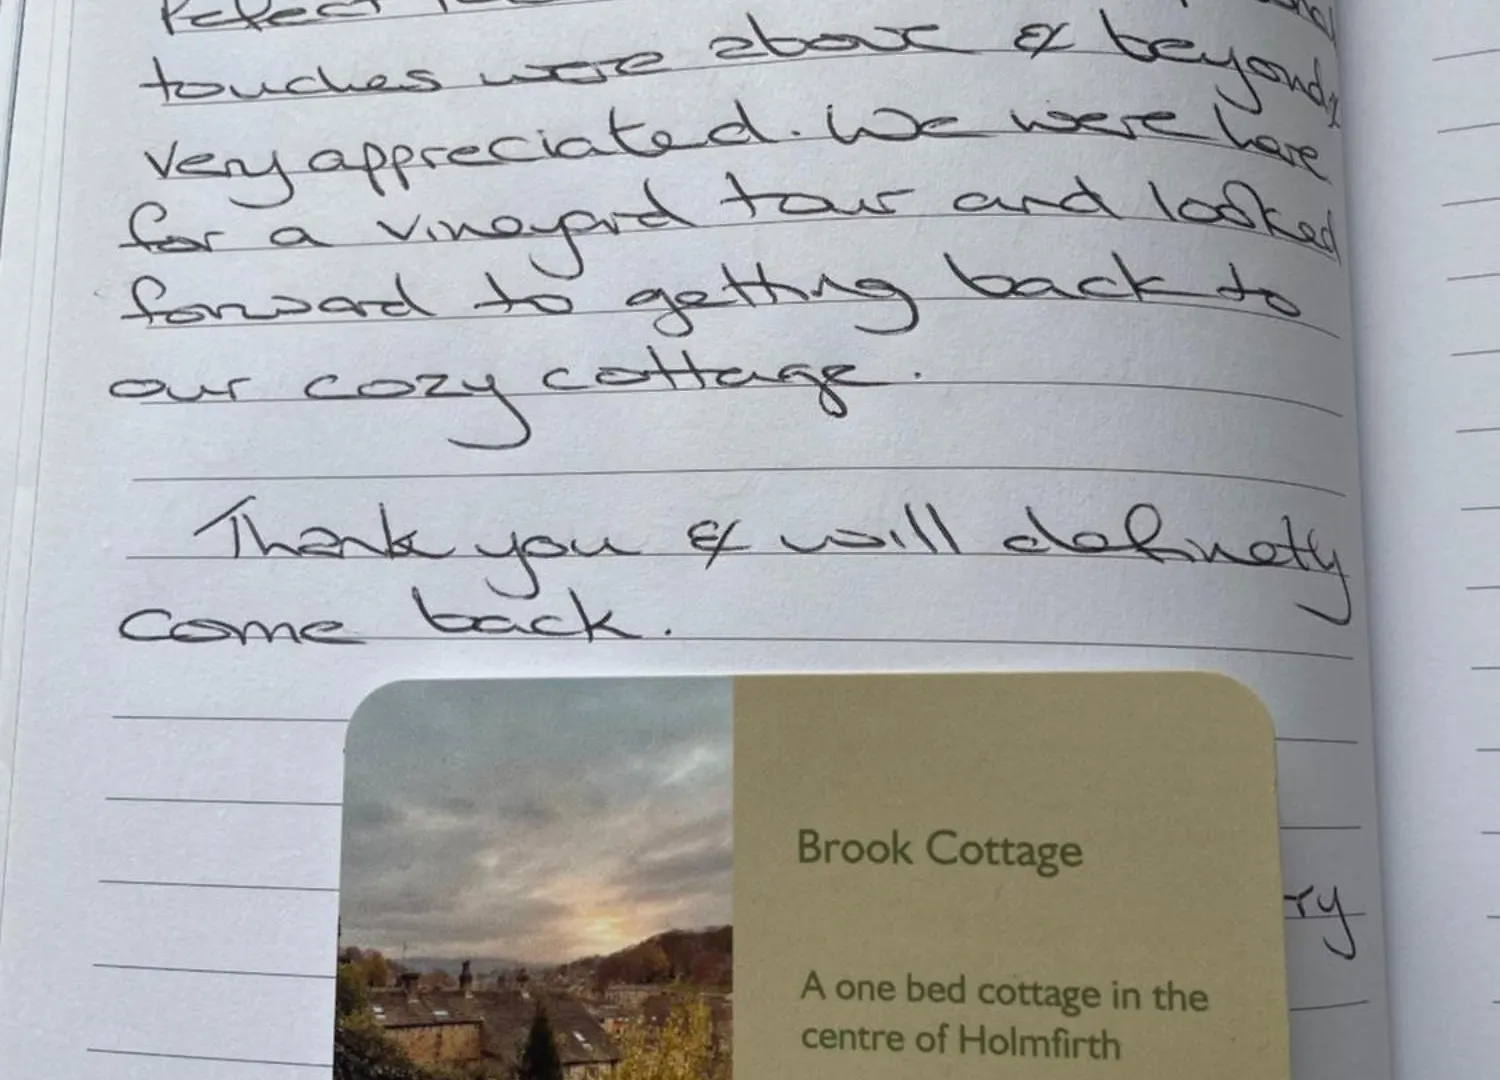 Perfect
touches were above & beyond &
very appreciated. We were here
for a vineyard tour and looked
forward to getting back to
our cozy cottage.
Thank you & will definetly
come back.
ry
Brook Cottage
A one bed cottage in the
centre of Holmfirth